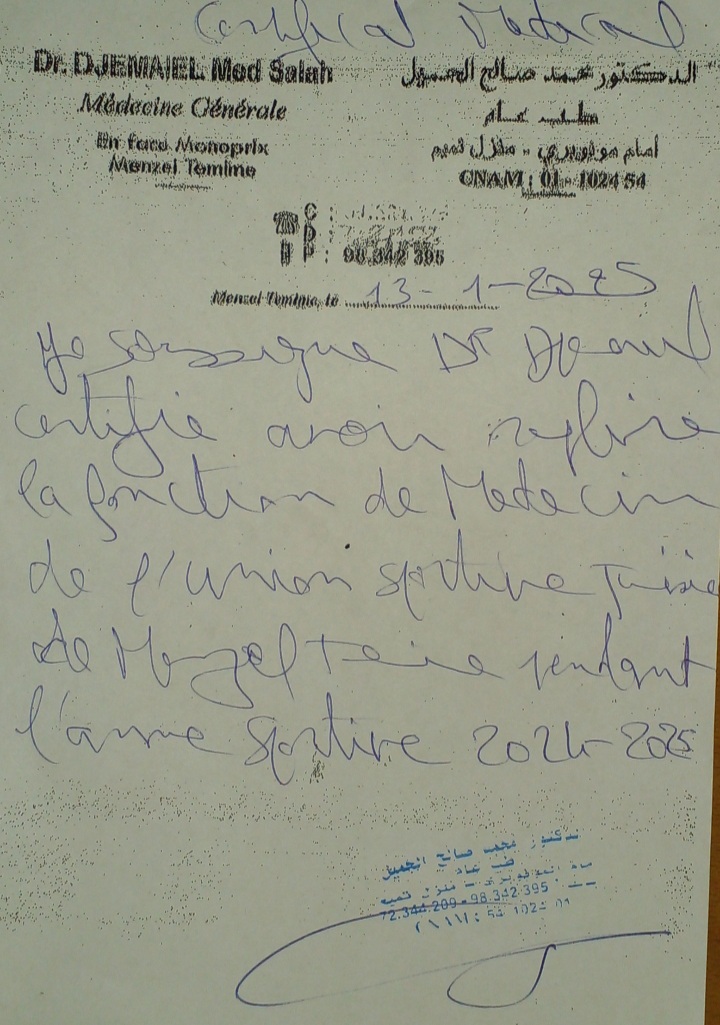 Certifical Medical
Dr. DJEMAIEL Med Salah
Médecine Générale
En face Monoprix
Menzel Temime
الدكتور محمد صالح الجميل
طب عام
أمام مونوبري - منزل تميم
CNAM : 01 - 1024 54
C :
D :
P : 98.342 395
Menzel Temime, le 13-1-2025
Je soussigne Dr
certifie avoir
la fonction de Medecin
de l'union sportive
de Menzel pendant
l'anne sportive 2024-2025
الدكتور محمد صالح الجميل
طب عام
72.344.209 - 98.342.395